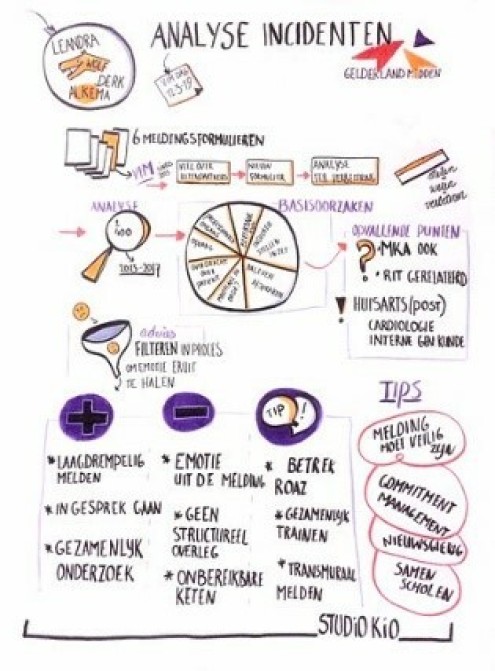 LEANDRA
WOLF
DERK
ALKEMA
ANALYSE INCIDENTEN
VIM DAG
12.3.19
GELDERLAND MIDDEN
6 MELDINGSFORMULIEREN
VIM
NIEUW
FORMULIER
ANALYSE
TER VERBETERING
ANALYSE
2015-2017
BASISOORZAKEN
OPVALLENDE PUNTEN
? • MKA OOK
• RIT GERELATEERD
! HUISARTS (POST)
CARDIOLOGIE
INTERNE GENKUNDE
advies
FILTEREN IN PROCES
OM EMOTIE ERUIT
TE HALEN
+
* LAAGDREMPELIG
MELDEN
* IN GESPREK GAAN
* GEZAMENLIJK
ONDERZOEK
-
* EMOTIE
UIT DE MELDING
* GEEN
STRUCTUREEL
OVERLEG
* ONBEREIKBARE
KETEN
TIP !
* BETREK
ROAZ
* GEZAMENLIJK
TRAINEN
* TRANSMURAAL
MELDEN
TIPS
MELDING
MOET VEILIG
ZIJN
COMMITMENT
MANAGEMENT
NIEUWSGIERIG
SAMEN
SCHOLEN
STUDIO KIO